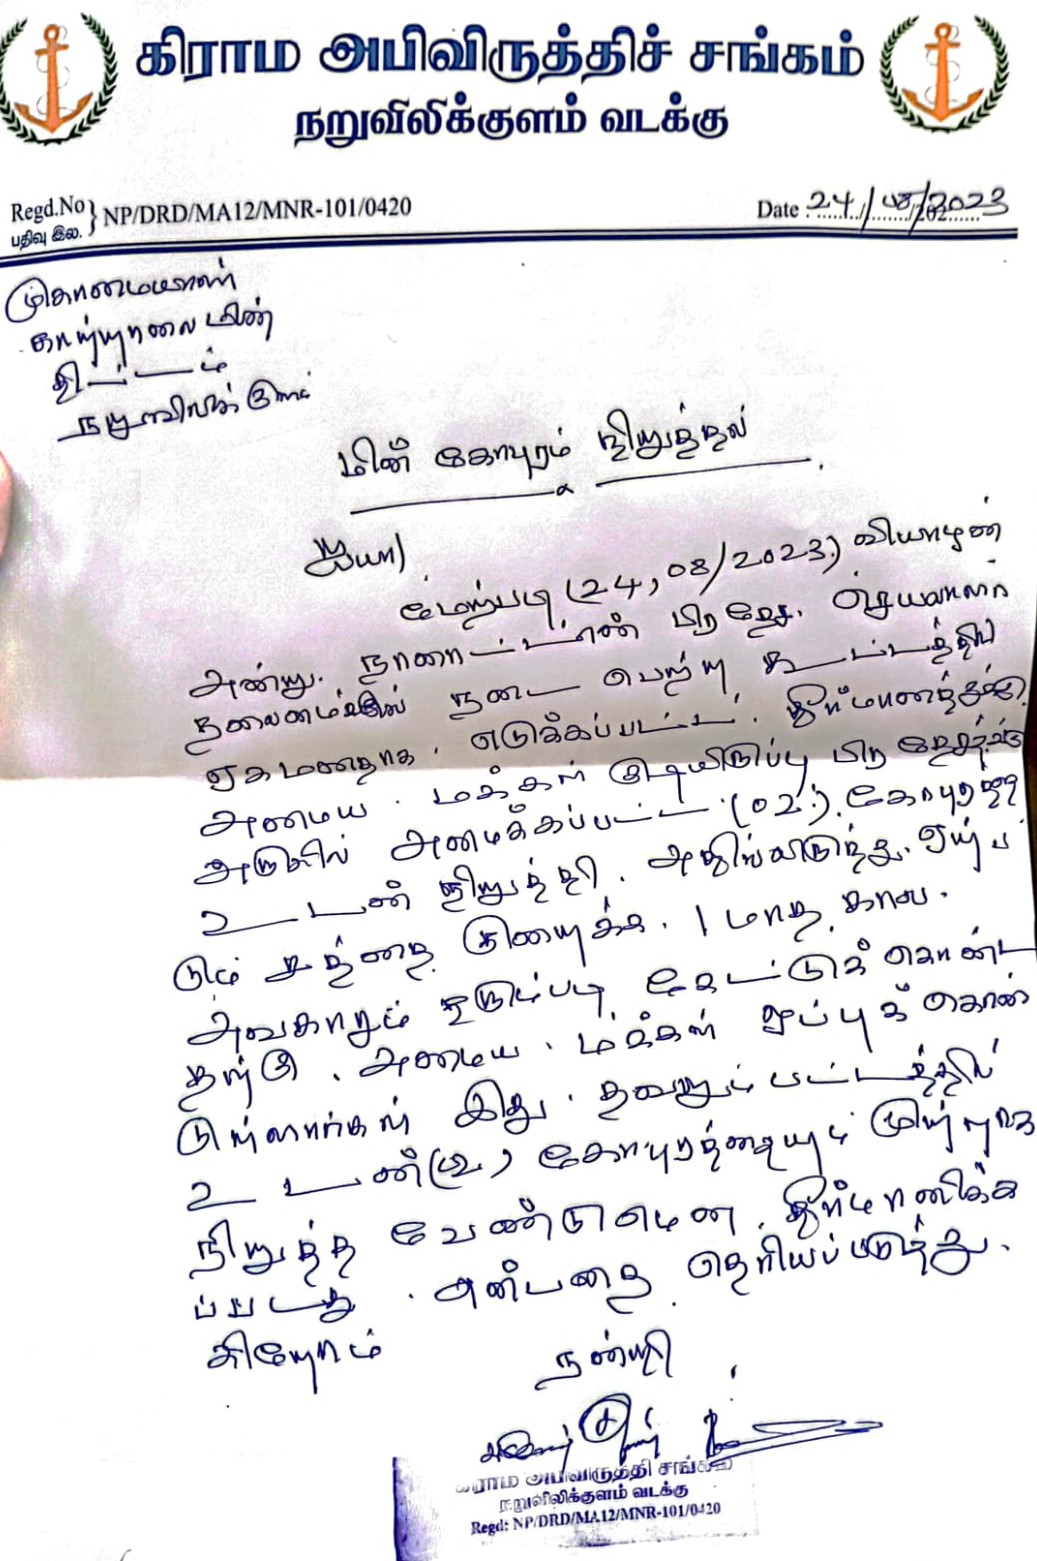 கிராம அபிவிருத்திச் சங்கம்
நறுவிலிக்குளம் வடக்கு
Regd.No } NP/DRD/MA12/MNR-101/0420
பதிவு இல.
Date : 24/08/2023
முகாமையாளர்
காற்றாலை மின்
திட்டம்
நறுவிலிக்குளம்
மின் கோபுரம் நிறுத்தல்
ஐயா,
மேற்படி (24,08/2023) வியாழன்
அன்று. நானாட்டான் பிரதேச. செயலாளர்
தலைமையில் நடை பெற்ற கூட்டத்தில்
ஏகமனதாக. எடுக்கப்பட்ட. தீர்மானத்துக்கு
அமைய. மக்கள் குடியிருப்பு பிரதேசத்திற்கு
அருகில் அமைக்கப்பட்ட (02) கோபுரத்தை
உடன் நிறுத்தி. அதிலிருந்து. ஏற்ப
டும் சத்தத்தை குறைக்க. 1 மாத கால.
அவகாசம் தரும்படி கேட்டுக் கொண்ட
தற்கு. அமைய. மக்கள் ஒப்புக் கொண்
டுள்ளார்கள் இது. தவறும் பட்டத்தில்
உடன் (2) கோபுரத்தையும் முற்றாக
நிறுத்த வேண்டுமென தீர்மானிக்க
ப்பட்டது. என்பதை தெரியப்படுத்து.
கிறோம்
நன்றி
கிராம அபிவிருத்தி சங்கம்
நறுவிலிக்குளம் வடக்கு
Regd: NP/DRD/MA12/MNR-101/0420